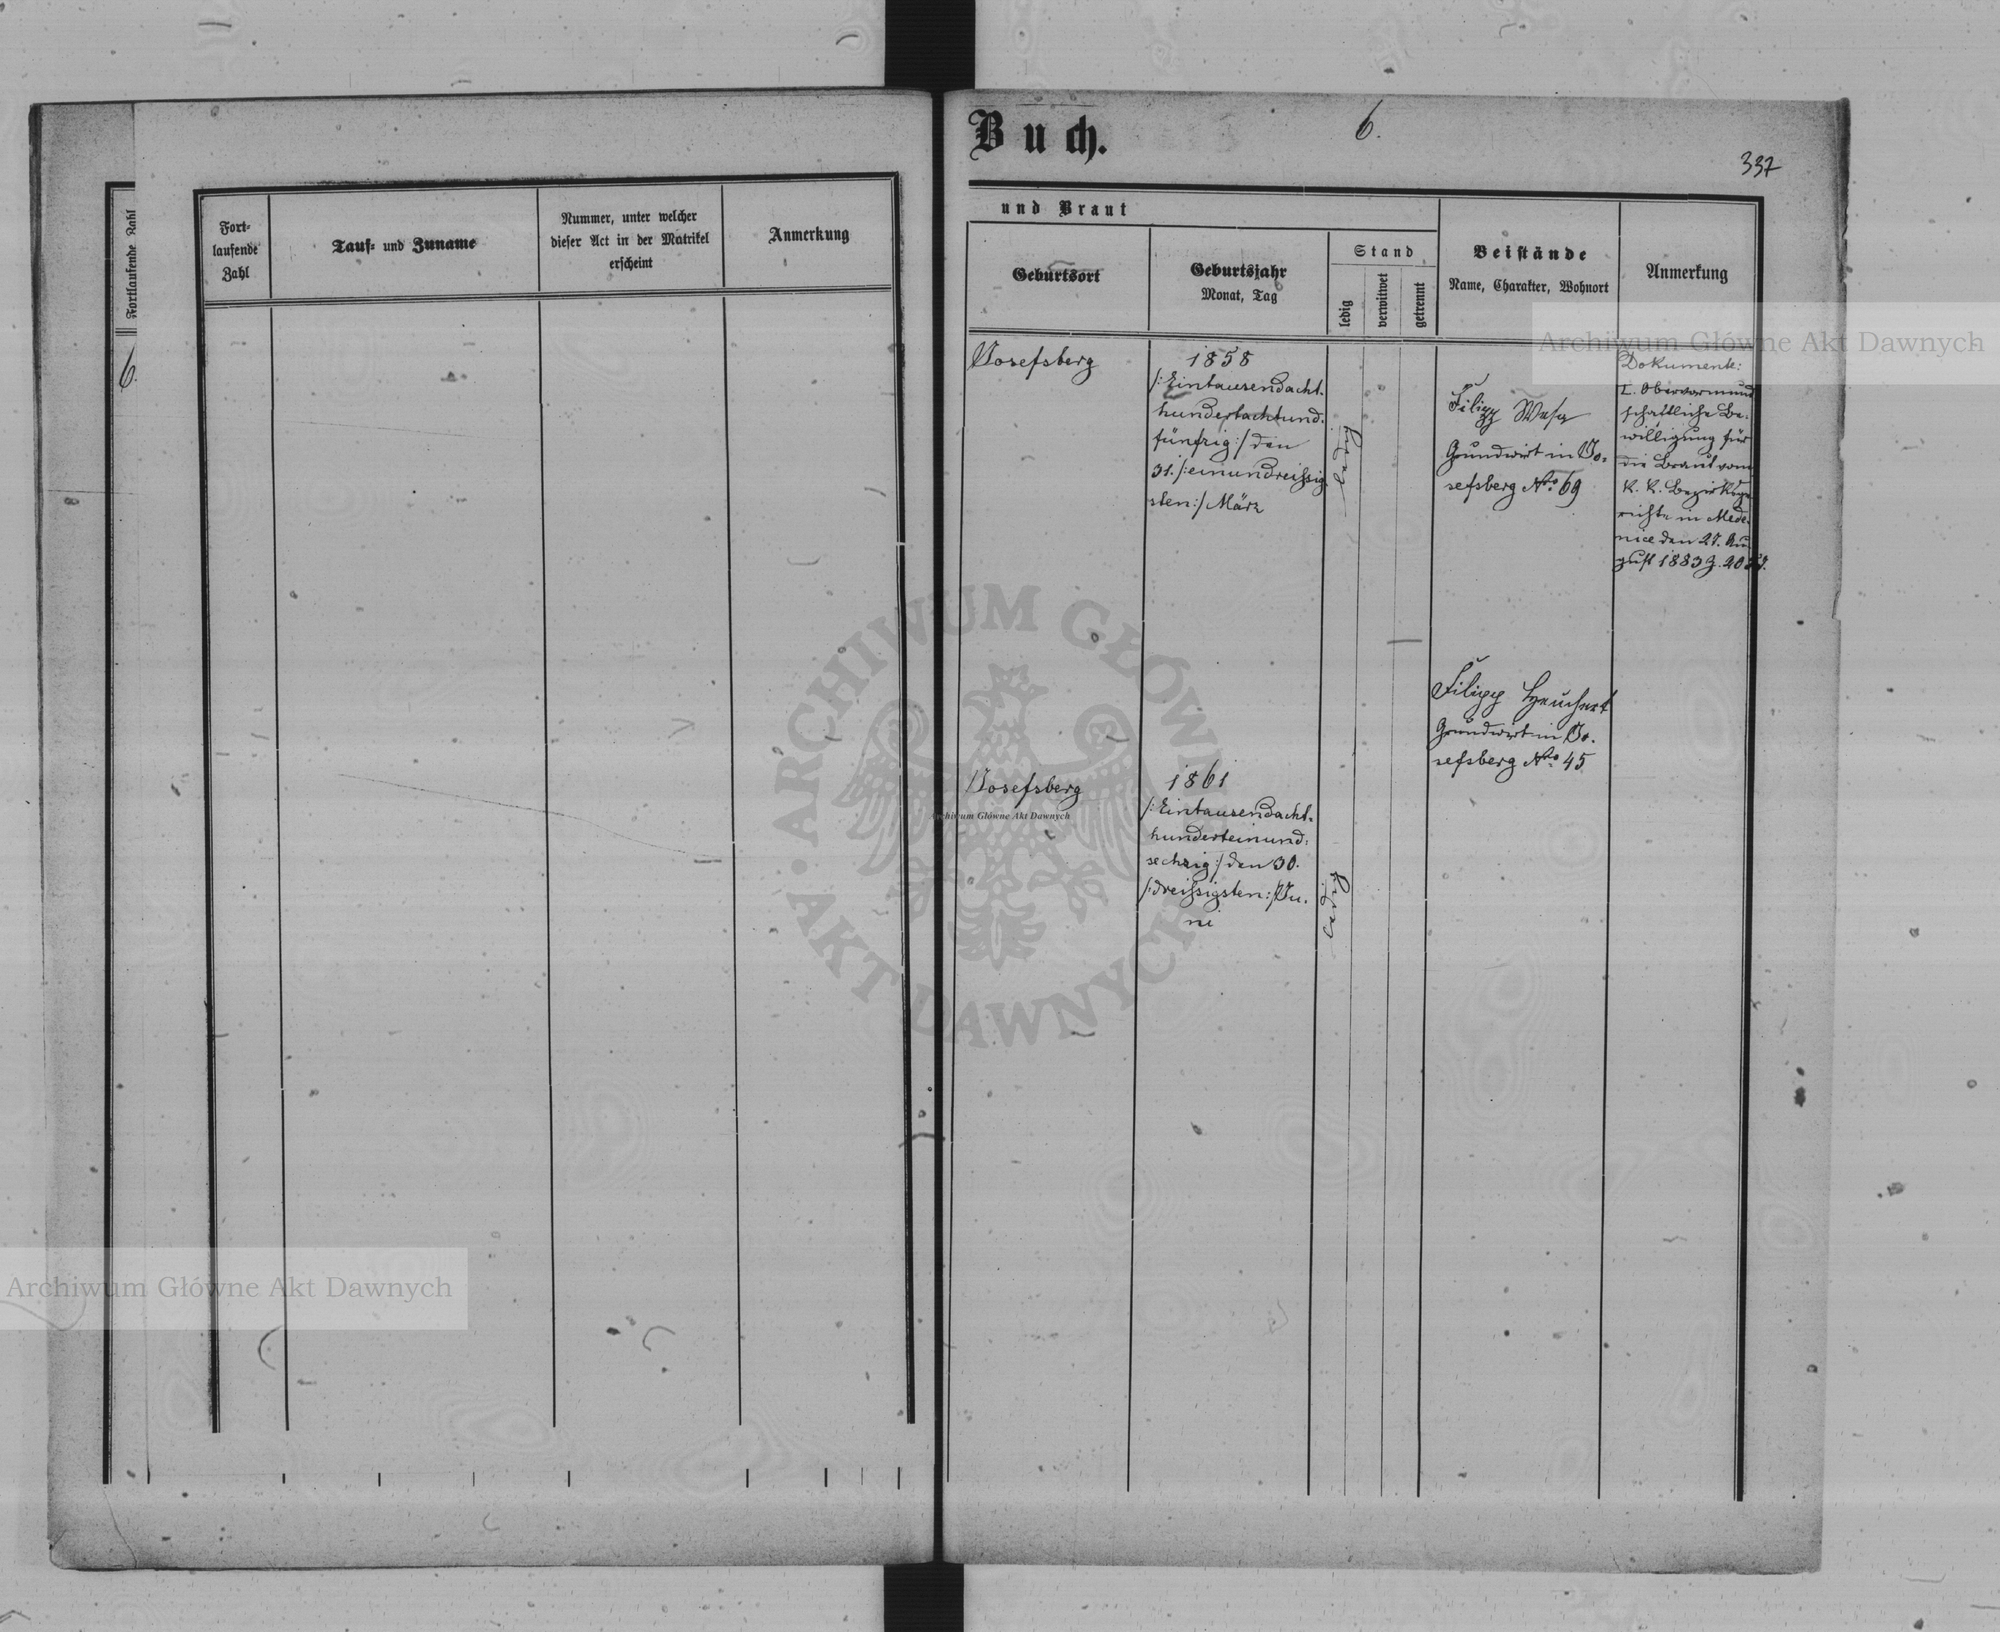 Buch.
6.
337
Fortlaufende Zahl
6.
Fort-
laufende
Zahl
Tauf- und Zuname
Nummer, unter welcher
dieser Act in der Matrikel
erscheint
Anmerkung
und Braut
Geburtsort
Geburtsjahr
Monat, Tag
Stand
ledig
verwitwet
getrennt
Beistände
Name, Charakter, Wohnort
Anmerkung
Josefsberg
1858
/:Eintausendacht-
hundertachtund-
fünfzig:/ den
31. /:einundreißig
sten:/ März
ledig
Filipp
Grundwirt in Jo-
sefsberg Nro 69
Dokumente:
I. Obervormund
schaftliche Be-
willigung für
die Braut vom
k. k. Bezirksge
richte in Mede-
nice den 27. Au
gust 1883 Z.
Filipp Heuchert
Grundwirt in Jo-
sefsberg Nro 45
Josefsberg
1861
/:Eintausendacht-
hunderteinund-
sechzig:/ den 30.
/:dreißigsten:/ Ju-
ni
ledig
Archiwum Główne Akt Dawnych
ARCHIWUM GŁÓWNE • AKT DAWNYCH •
Archiwum Główne Akt Dawnych
Archiwum Główne Akt Dawnych